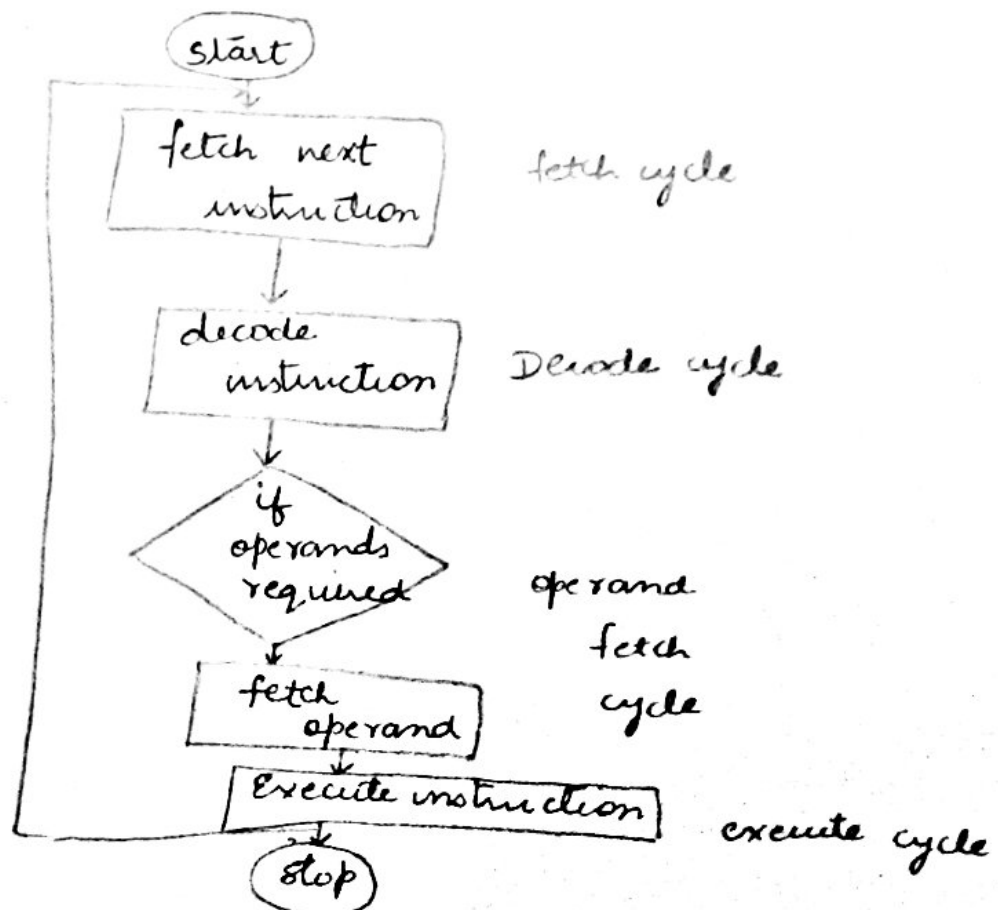 start
fetch next
instruction
fetch cycle
decode
instruction
Decode cycle
if
operands
required
operand
fetch
cycle
fetch
operand
Execute instruction
execute cycle
stop